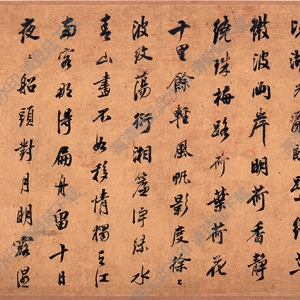 微波幽岸明荷香靜
繞珠梅路荷葉荷花
十里餘輕風帆影度徐〻
波紋蕩衍湘簾浮綠水
青山畫不如移情獨立江
南客那得扁舟留十日
夜〻船頭對月明露溼